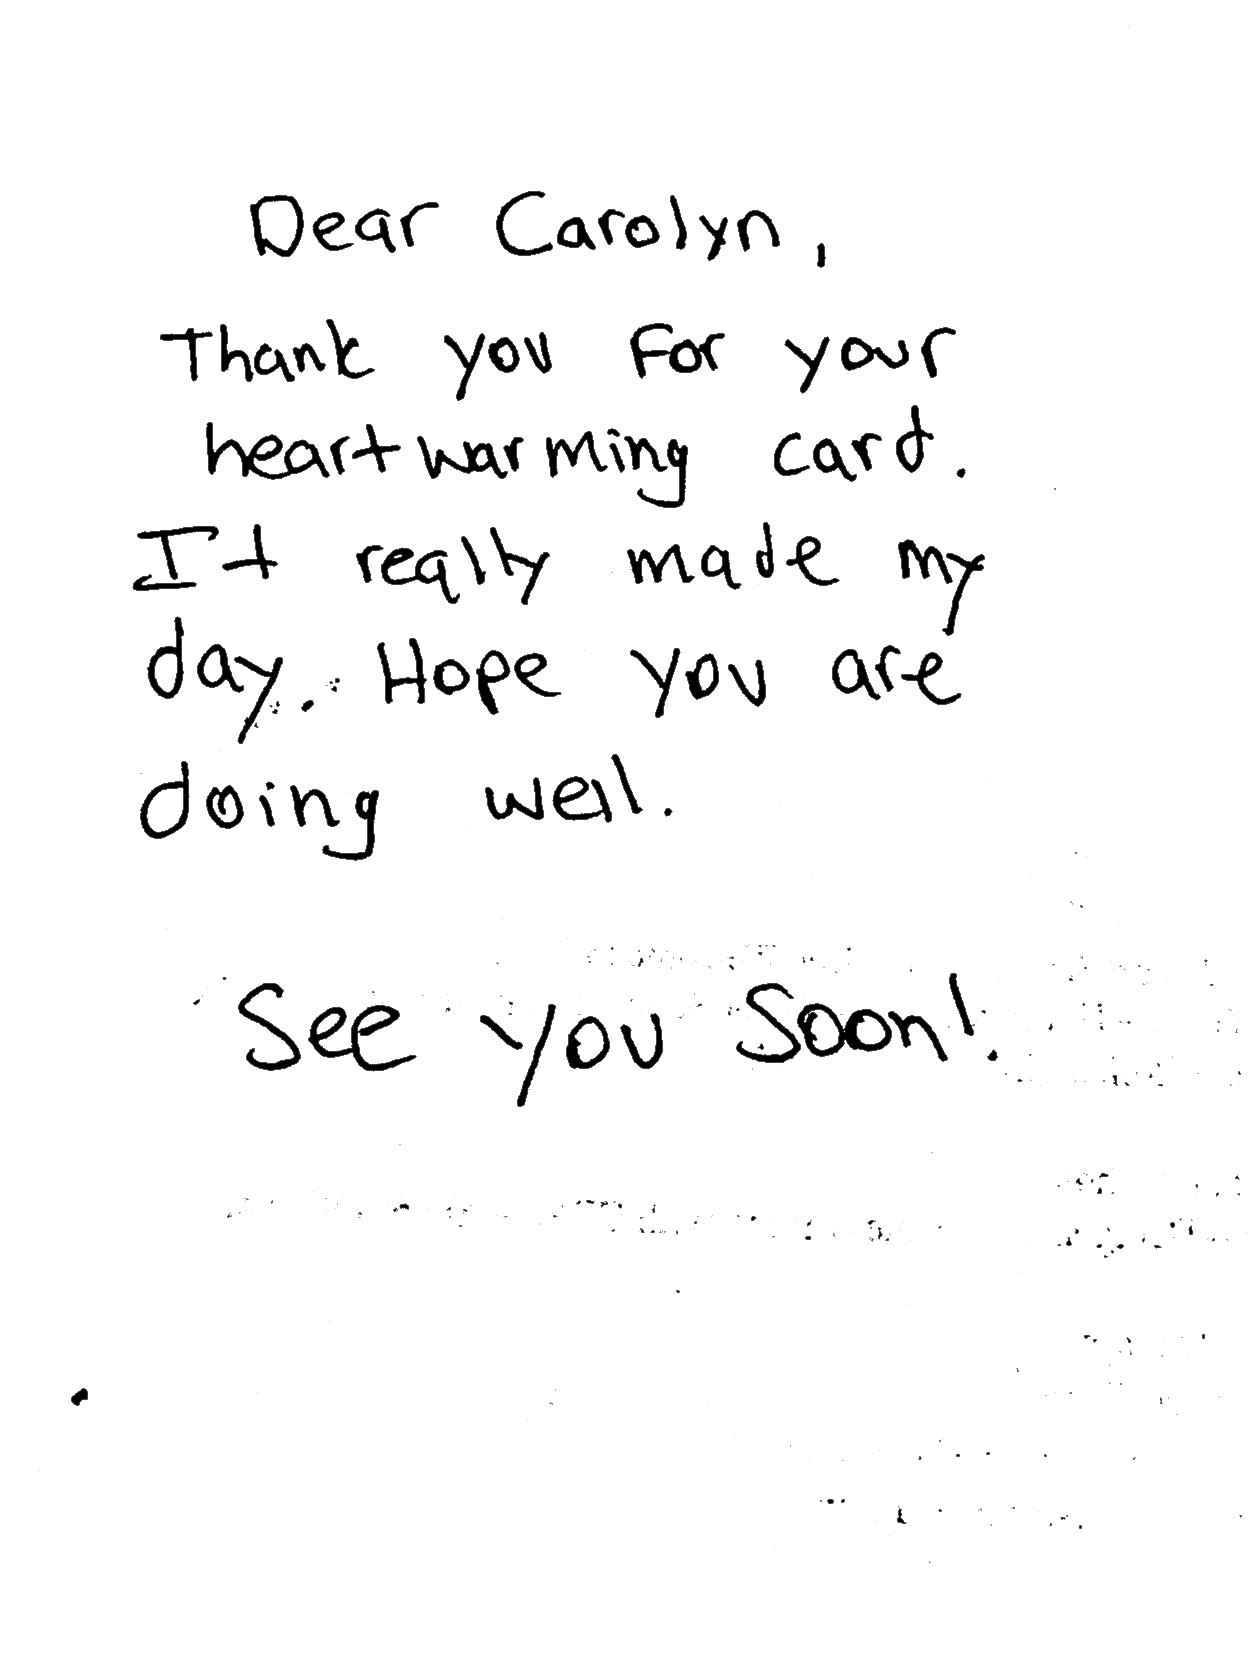 Dear Carolyn,
Thank you For your
heartwarming card.
It really made my
day. Hope you are
doing well.
See you Soon!